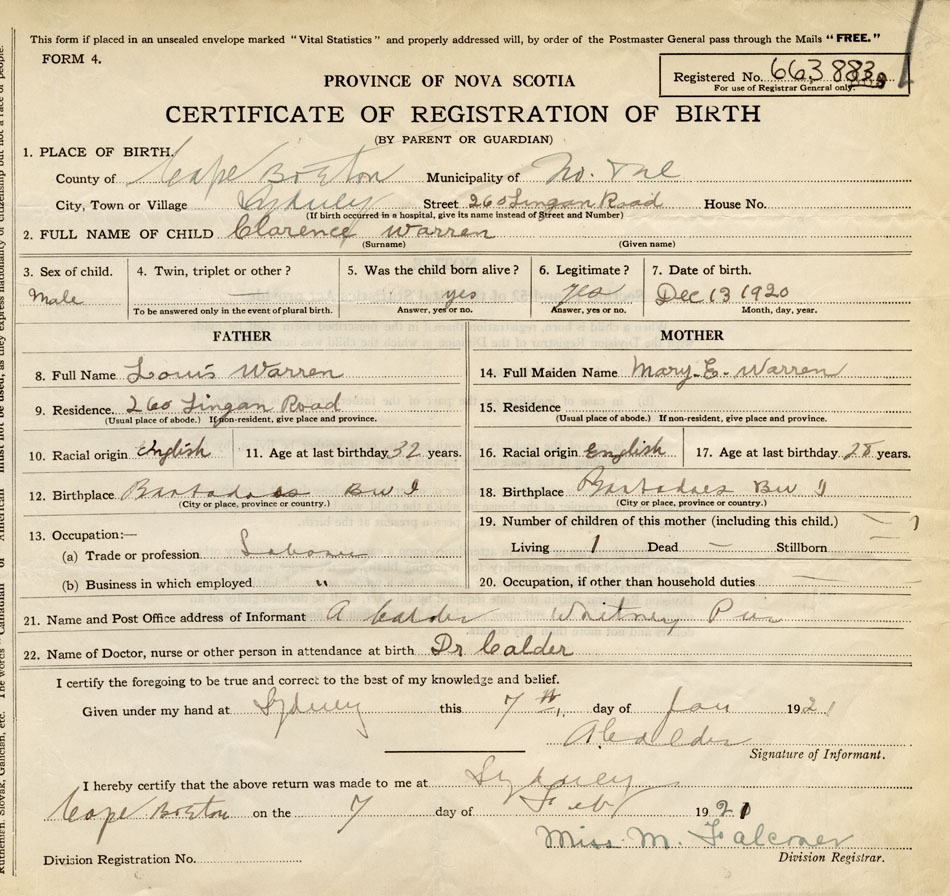 This form if placed in an unsealed envelope marked "Vital Statistics" and properly addressed will, by order of the Postmaster General pass through the Mails "FREE."
FORM 4.
Registered No. 663883
For use of Registrar General only.
PROVINCE OF NOVA SCOTIA
CERTIFICATE OF REGISTRATION OF BIRTH
(BY PARENT OR GUARDIAN)
1. PLACE OF BIRTH.
County of Cape Breton Municipality of No.
City, Town or Village Sydney Street 260 Lingan Road House No.
(If birth occurred in a hospital, give its name instead of Street and Number)
2. FULL NAME OF CHILD Clarence Warren
(Surname) (Given name)
3. Sex of child. 4. Twin, triplet or other? 5. Was the child born alive? 6. Legitimate? 7. Date of birth.
Male — yes yes Dec 13 1920
To be answered only in the event of plural birth. Answer, yes or no. Answer, yes or no. Month, day, year.
FATHER
8. Full Name Louis Warren
9. Residence. 260 Lingan Road
(Usual place of abode.) If non-resident, give place and province.
10. Racial origin English 11. Age at last birthday 32 years.
12. Birthplace Barbadoes BWI
(City or place, province or country.)
13. Occupation:—
(a) Trade or profession Labourer
(b) Business in which employed "
MOTHER
14. Full Maiden Name Mary. E. Warren
15. Residence
(Usual place of abode.) If non-resident, give place and province.
16. Racial origin English 17. Age at last birthday 28 years.
18. Birthplace Barbadoes BWI
(City or place, province or country.)
19. Number of children of this mother (including this child.) —
Living 1 Dead — Stillborn —
20. Occupation, if other than household duties —
21. Name and Post Office address of Informant A Calder Whitney Pier
22. Name of Doctor, nurse or other person in attendance at birth Dr Calder
I certify the foregoing to be true and correct to the best of my knowledge and belief.
Given under my hand at Sydney this 7th day of Jan 1921
A Calder
Signature of Informant.
I hereby certify that the above return was made to me at Sydney
Cape Breton on the 7 day of Feb 1921
Miss M. Falconer
Division Registration No. Division Registrar.